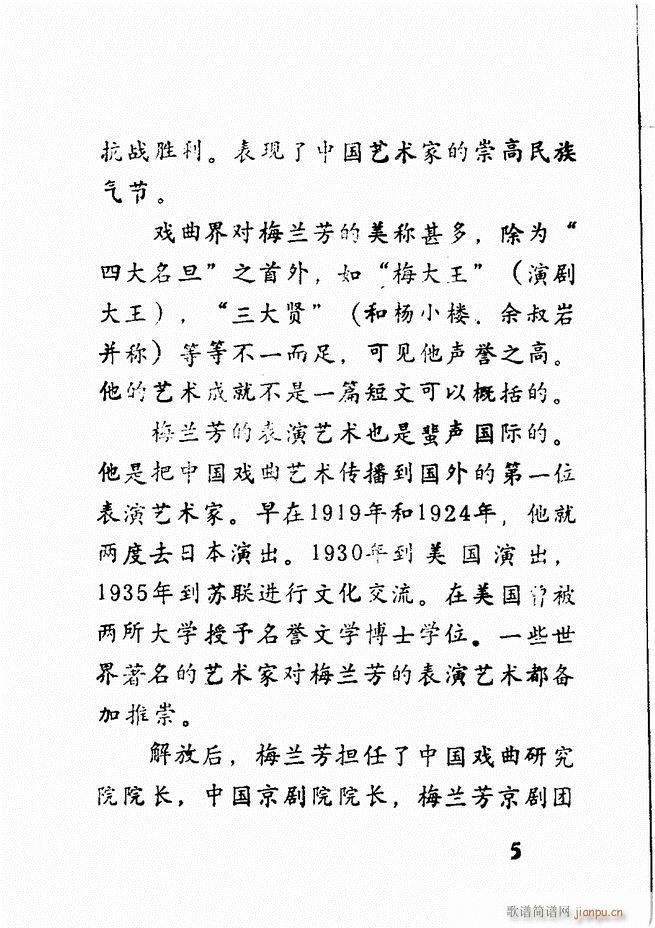 抗战胜利。表现了中国艺术家的崇高民族
气节。
戏曲界对梅兰芳的美称甚多，除为“
四大名旦”之首外，如“梅大王”（演剧
大王），“三大贤”（和杨小楼．余叔岩
并称）等等不一而足，可见他声誉之高。
他的艺术成就不是一篇短文可以概括的。
梅兰芳的表演艺术也是蜚声国际的。
他是把中国戏曲艺术传播到国外的第一位
表演艺术家。早在1919年和1924年，他就
两度去日本演出。1930年到美国演出，
1935年到苏联进行文化交流。在美国曾被
两所大学授予名誉文学博士学位。一些世
界著名的艺术家对梅兰芳的表演艺术都备
加推崇。
解放后，梅兰芳担任了中国戏曲研究
院院长，中国京剧院院长，梅兰芳京剧团
5
歌谱简谱网 jianpu.cn